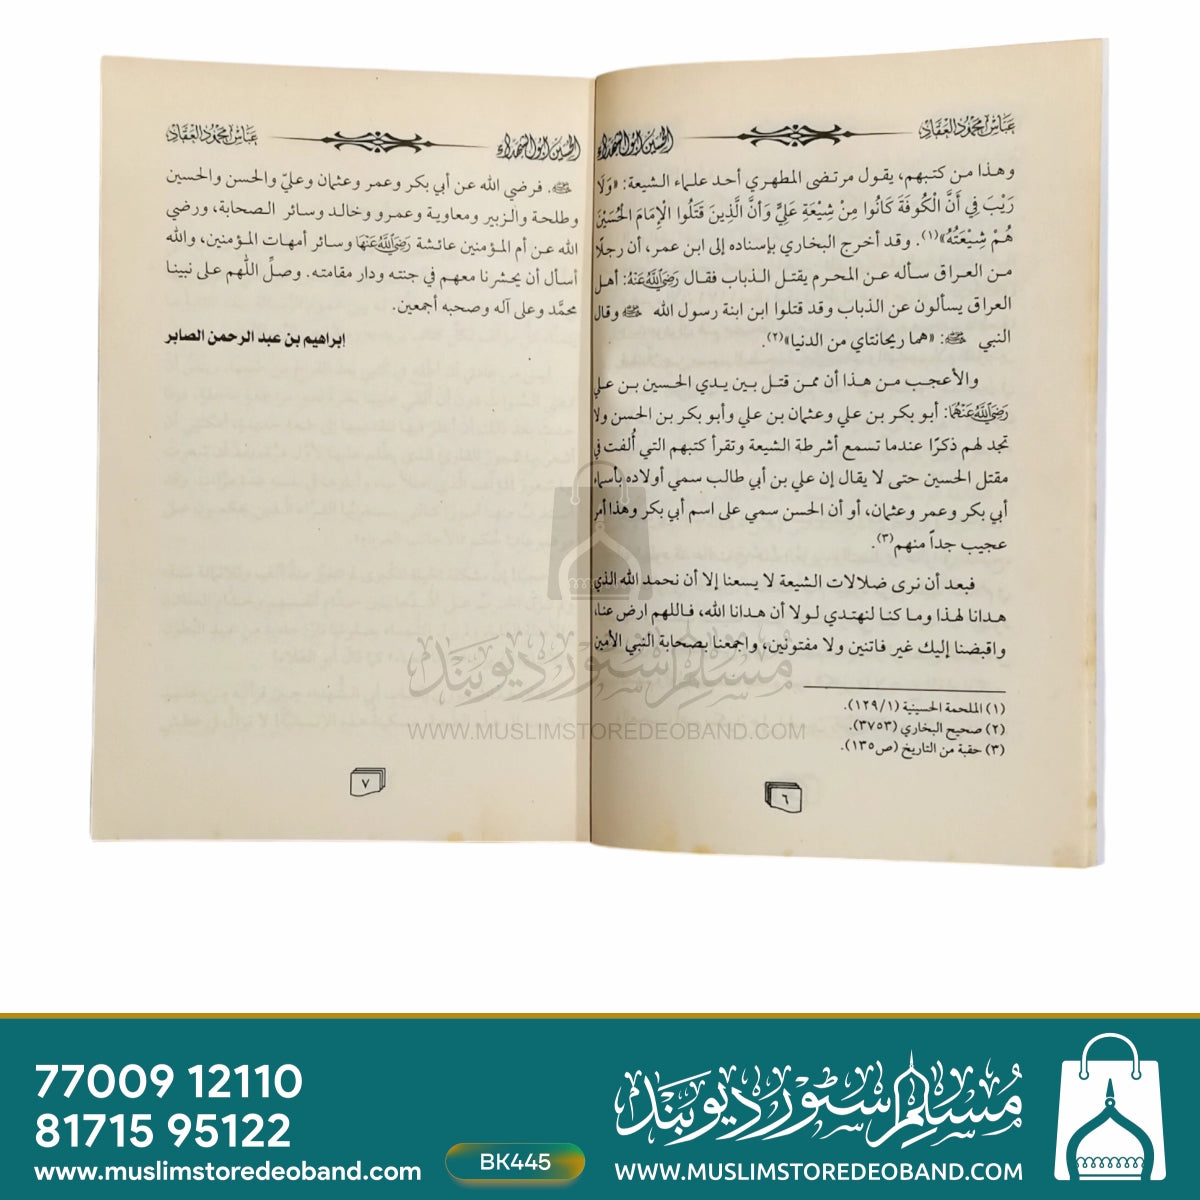 الحسين أبو الشهداء
عباس محمود العقاد
وهذا من كتبهم، يقول مرتضى المطهري أحد علماء الشيعة: «وَلَا
رَيْبَ فِي أَنَّ الْكُوفَةَ كَانُوا مِنْ شِيْعَةِ عَلِيٍّ وَأَنَّ الَّذِينَ قَتَلُوا الْإِمَامَ الْحُسَيْنَ
هُمْ شِيْعَتُهُ»(١). وقد أخرج البخاري بإسناده إلى ابن عمر، أن رجلًا
من العراق سأله عن المحرم يقتل الذباب فقال رَضِيَ اللَّهُ عَنْهُ: أهل
العراق يسألون عن الذباب وقد قتلوا ابن ابنة رسول الله ﷺ وقال
النبي ﷺ: «هما ريحانتاي من الدنيا»(٢).
والأعجب من هذا أن ممن قتل بين يدي الحسين بن علي
رَضِيَ اللَّهُ عَنْهُمَا: أبو بكر بن علي وعثمان بن علي وأبو بكر بن الحسن ولا
تجد لهم ذكرًا عندما تسمع أشرطة الشيعة وتقرأ كتبهم التي أُلفت في
مقتل الحسين حتى لا يقال إن علي بن أبي طالب سمي أولاده بأسماء
أبي بكر وعمر وعثمان، أو أن الحسن سمي على اسم أبي بكر وهذا أمر
عجيب جداً منهم(٣).
فبعد أن نرى ضلالات الشيعة لا يسعنا إلا أن نحمد الله الذي
هدانا لهذا وما كنا لنهتدي لولا أن هدانا الله، فاللهم ارض عنا،
واقبضنا إليك غير فاتنين ولا مفتونين، واجمعنا بصحابة النبي الأمين
(١) الملحمة الحسينية (١٢٩/١).
(٢) صحيح البخاري (٣٧٥٣).
(٣) حقبة من التاريخ (ص١٣٥).
٦
الحسين أبو الشهداء
عباس محمود العقاد
ﷺ. فرضي الله عن أبي بكر وعمر وعثمان وعليّ والحسن والحسين
وطلحة والزبير ومعاوية وعمرو وخالد وسائر الصحابة، ورضي
الله عن أم المؤمنين عائشة رَضِيَ اللَّهُ عَنْهَا وسائر أمهات المؤمنين، والله
أسأل أن يحشرنا معهم في جنته ودار مقامته. وصلِّ اللَّهم على نبينا
محمَّد وعلى آله وصحبه أجمعين.
إبراهيم بن عبد الرحمن الصابر
٧
مسلم سٹور دیوبند
WWW.MUSLIMSTOREDEOBAND.COM
77009 12110
81715 95122
www.muslimstoredeoband.com
BK445
مسلم سٹور دیوبند
WWW.MUSLIMSTOREDEOBAND.COM